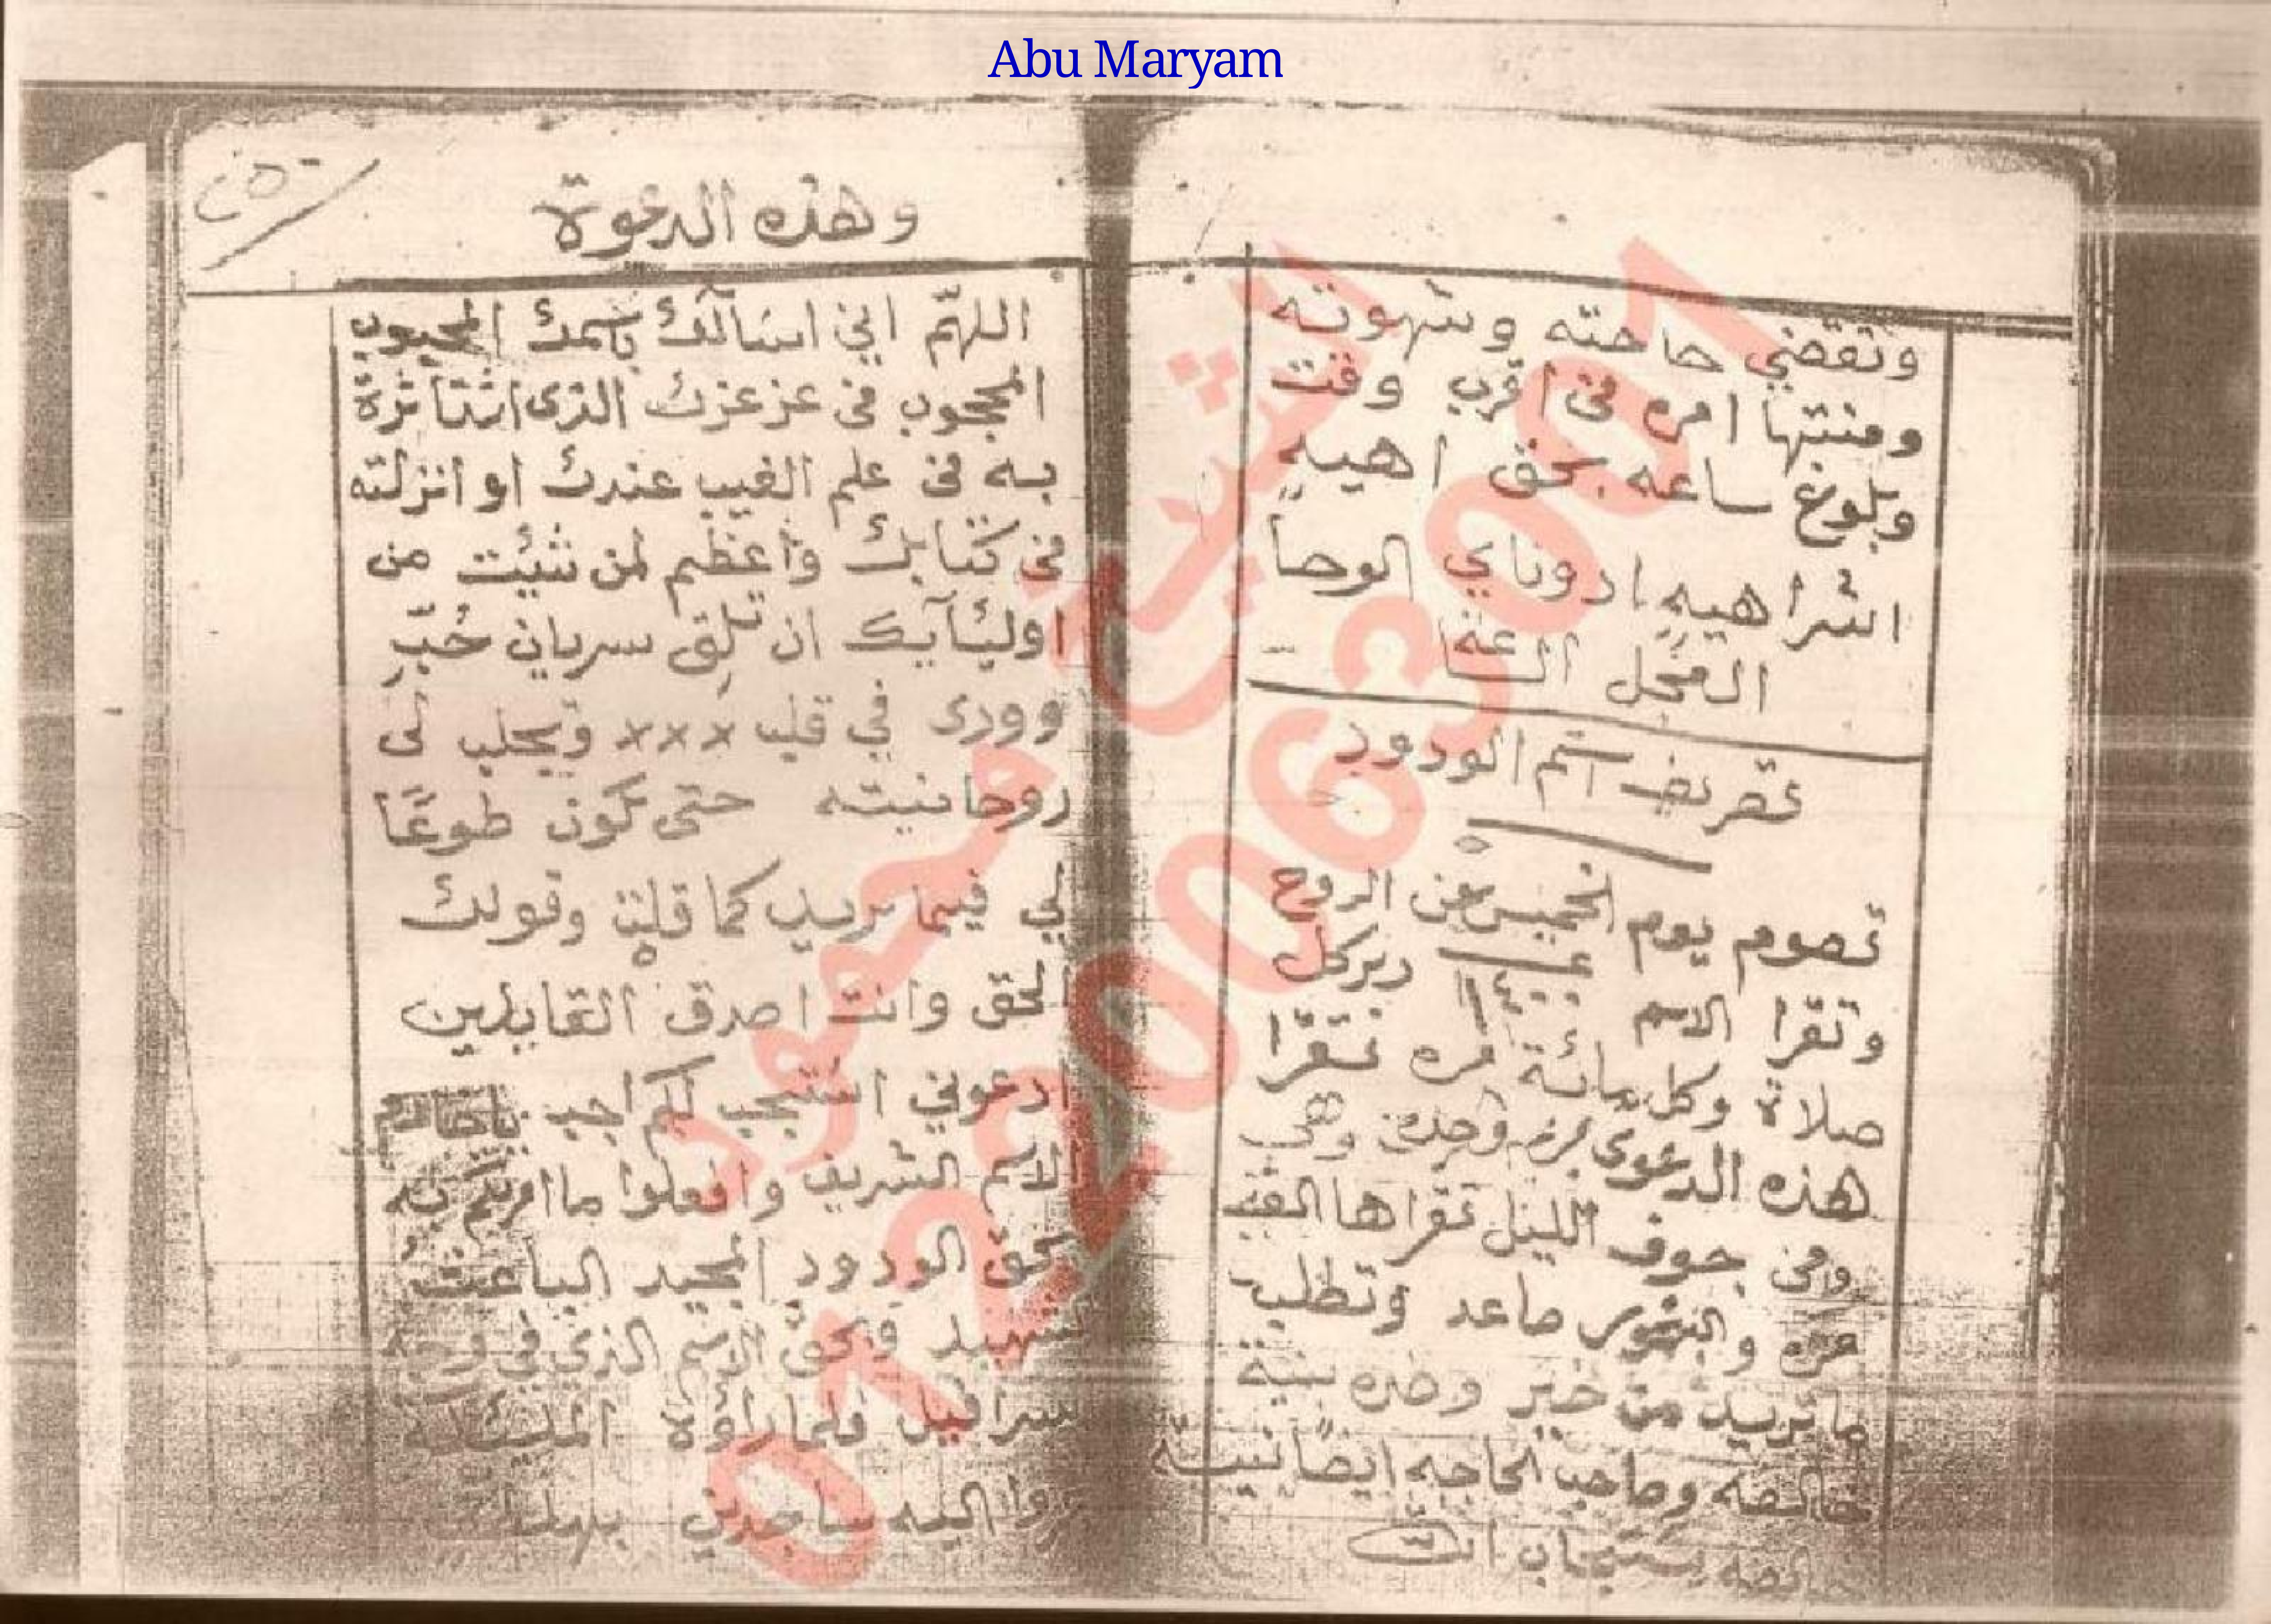 Abu Maryam
وتقضي حاجته وشهوته
ومنتها امره فى اقرب وقت
وبلوغ ساعه بحق اهيه
اشراهيه ادوناي الوحا
العجل الساعة
تصريف اسم الودود
تصوم يوم الخميس عن الروح
وتقرا الاسم دبر كل
صلاة وكل مائة مره تقرا
هذه الدعوى مره وحده وهى
وفى جوف الليل تقراها الف
مره والبخور صاعد وتطلب
ما تريد من خير وضره بنية
خالصه وصاحب الحاجه ايضا نيته
خالصه يستجاب
٢٥٠
وهذه الدعوة
اللهم اني اسألك باسمك المحبوب
المحجوب فى عز عزك الذى استاثرة
به فى علم الغيب عندك او انزلته
فى كتابك واعظم لمن شئت من
اوليآيك ان تلق سريان حُبّ
وودى في قلب xxx ويجلب لى
روحانيته حتى تكون طوعًا
لي فيما تريد كما قلت وقولك
الحق وانت اصدق القايلين
ادعوني استجب لكم اجب يا خادم
الاسم الشريف وافعلوا ما امرتكم به
بحق الودود المجيد الباعث
شهيد وبحق الاسم الذي في وجه
سرافيل فلما راؤة الملئكة
اليه ساجدين
01220063081
الشيخ محمود